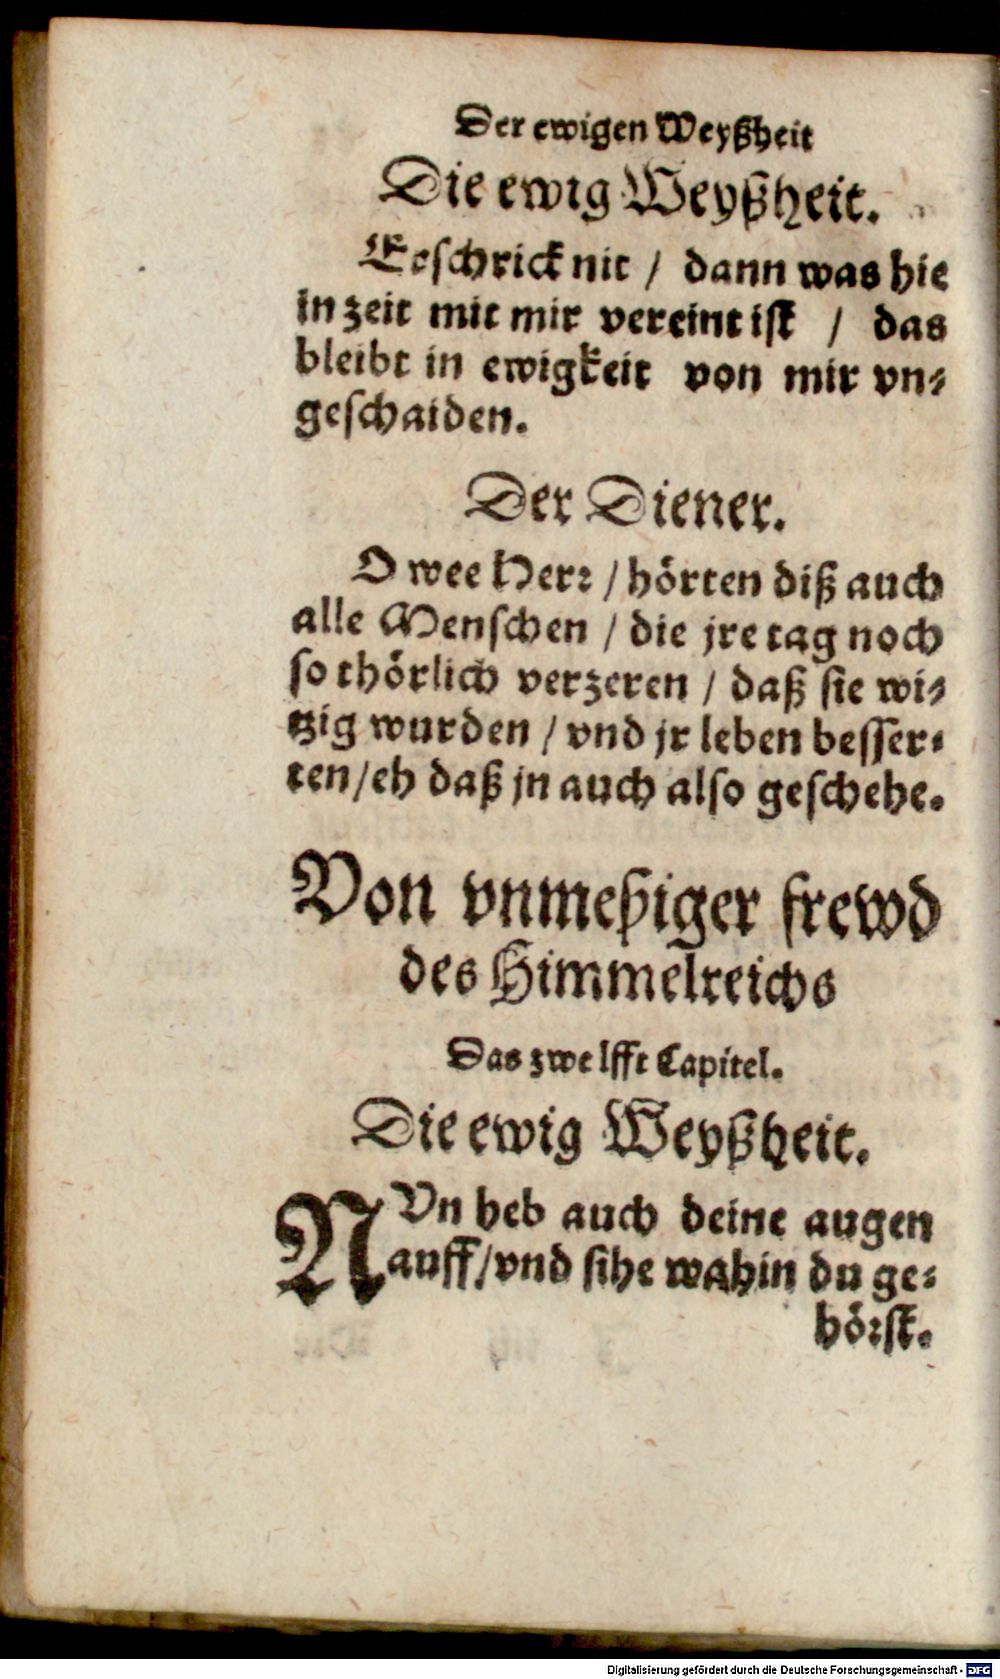 Der ewigen Weyßheit
Die ewig Weyßheit.
Erschrick nit / dann was hie
in zeit mit mir vereint ist / das
bleibt in ewigkeit von mir vn-
geschaiden.
Der Diener.
O wee Herr / hörten diß auch
alle Menschen / die jre tag noch
so thörlich verzeren / daß sie wi-
tzig wurden / vnd jr leben besser-
ten / eh daß jn auch also geschehe.
Von vnmeßiger frewd
des Himmelreichs
Das zwelfft Capitel.
Die ewig Weyßheit.
NVn heb auch deine augen
auff / vnd sihe wahin du ge-
hörst.
Digitalisierung gefördert durch die Deutsche Forschungsgemeinschaft - DFG